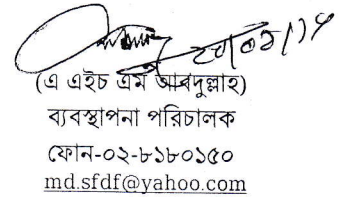 (এ এইচ এম আবদুল্লাহ)
ব্যবস্থাপনা পরিচালক
ফোন-০২-৮১৮০১৫০
md.sfdf@yahoo.com